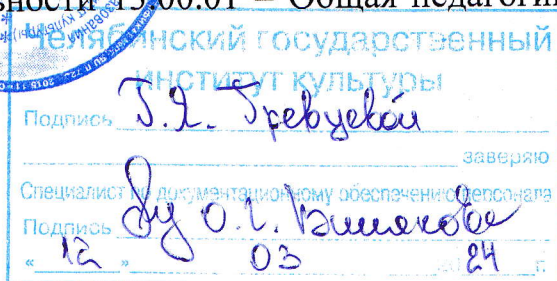 ности 13.00.01 – Общая педагоги
Челябинский государственный
институт культуры
Подпись Г.Я. Гревцевой
заверяю
Специалист по документационному обеспечению персонала
Подпись О.Г.
«12» 03 2024 г.